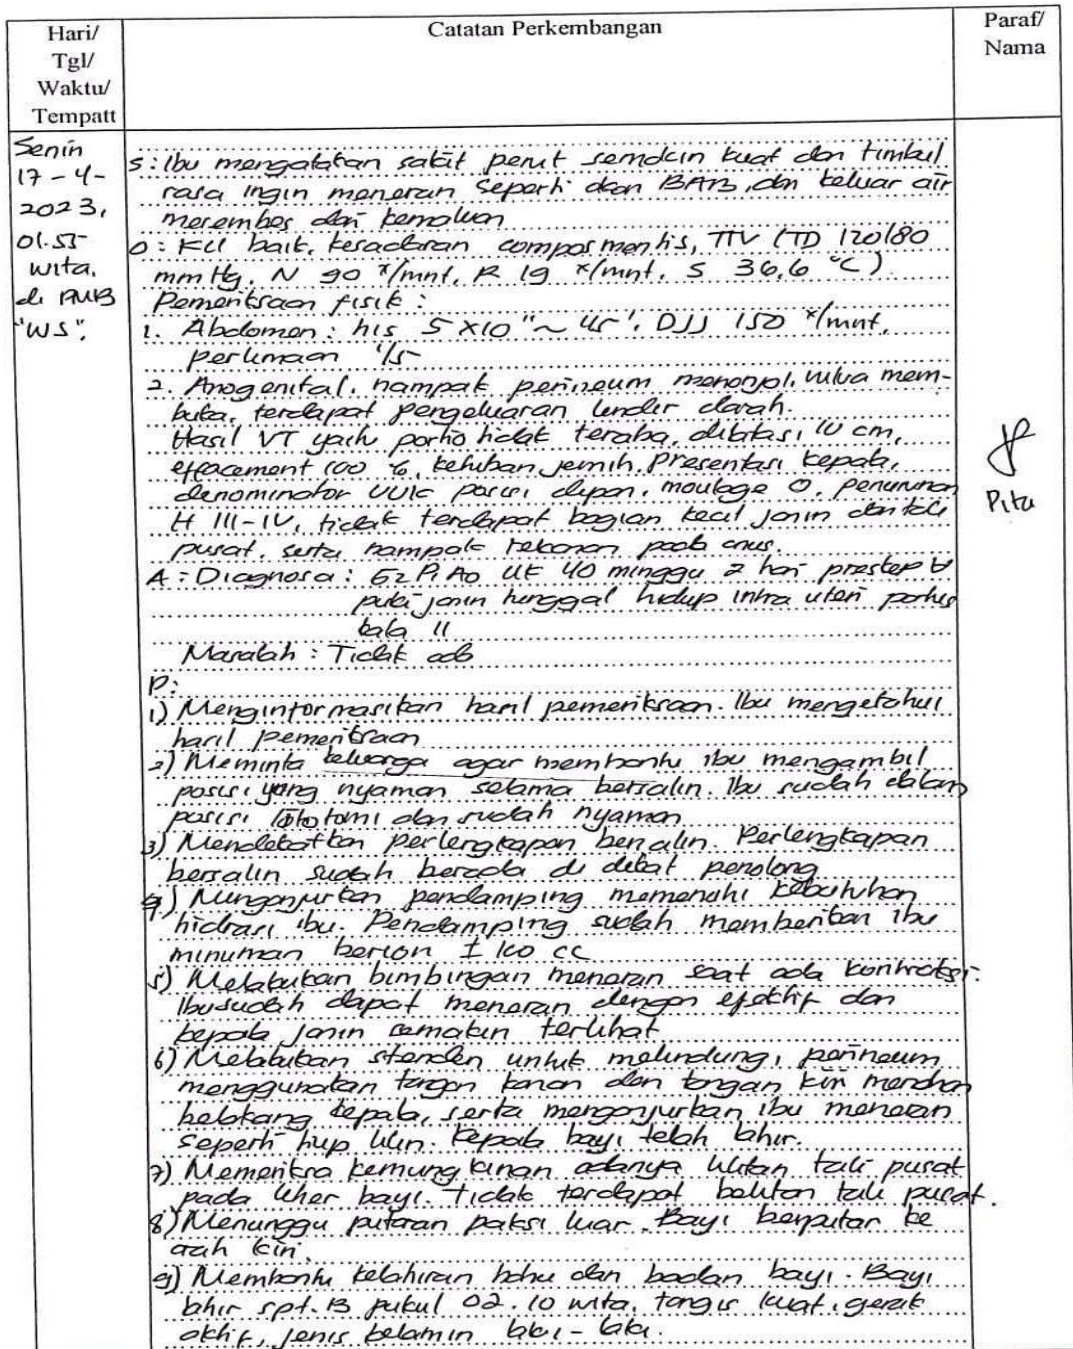 Hari/
Tgl/
Waktu/
Tempatt
Catatan Perkembangan
Paraf/
Nama
Senin
17-4-
2023,
01.55
wita.
di PMB
"WS".
S: Ibu mengatakan sakit perut semakin kuat dan timbul
rasa ingin meneran seperti akan BAB, dan keluar air
merembes dari kemaluan
O: KU baik, kesadaran composmentis, TTV (TD 120/80
mmHg, N 90 x/mnt, R 19 x/mnt, S 36,6 °C)
Pemeriksaan fisik:
1. Abdomen: his 5x10" ~ 45', DJJ 150 x/mnt,
perlimaan 1/5
2. Anogenital, nampak perineum menonjol, vulva mem-
buka, terdapat pengeluaran lendir darah.
Hasil VT yaitu portio tidak teraba, dilatasi 10 cm,
effacement 100 %, ketuban jernih, presentasi kepala,
denominator UUK posisi depan, moulage 0, penurunan
H III-IV, tidak terdapat bagian kecil janin dan tali
pusat, serta nampak tekanan pada anus.
A: Diagnosa: G2P1A0 UK 40 minggu 2 hari preskep U
puki janin tunggal hidup intra uteri partus
kala II
Masalah: Tidak ada
P:
1) Menginformasikan hasil pemeriksaan. Ibu mengetahui
hasil pemeriksaan
2) Meminta keluarga agar membantu ibu mengambil
posisi yang nyaman selama bersalin. Ibu sudah dalam
posisi litotomi dan sudah nyaman
3) Mendekatkan perlengkapan bersalin. Perlengkapan
bersalin sudah berada di dekat penolong
4) Menganjurkan pendamping memenuhi kebutuhan
hidrasi ibu. Pendamping sudah memberikan ibu
minuman berion ± 100 cc
5) Melakukan bimbingan meneran saat ada kontraksi.
Ibu sudah dapat meneran dengan efektif dan
kepala janin semakin terlihat
6) Melakukan stenden untuk melindungi perineum
menggunakan tangan kanan dan tangan kiri menahan
belakang kepala, serta menganjurkan ibu meneran
seperti tiup lilin. Kepala bayi telah lahir.
7) Memeriksa kemungkinan adanya lilitan tali pusat
pada leher bayi. Tidak terdapat belitan tali pusat.
8) Menunggu putaran paksi luar. Bayi berputar ke
arah kiri.
9) Membantu kelahiran bahu dan badan bayi. Bayi
lahir spt. B pukul 02.10 wita, tangis kuat, gerak
aktif, jenis kelamin laki-laki.
Pita